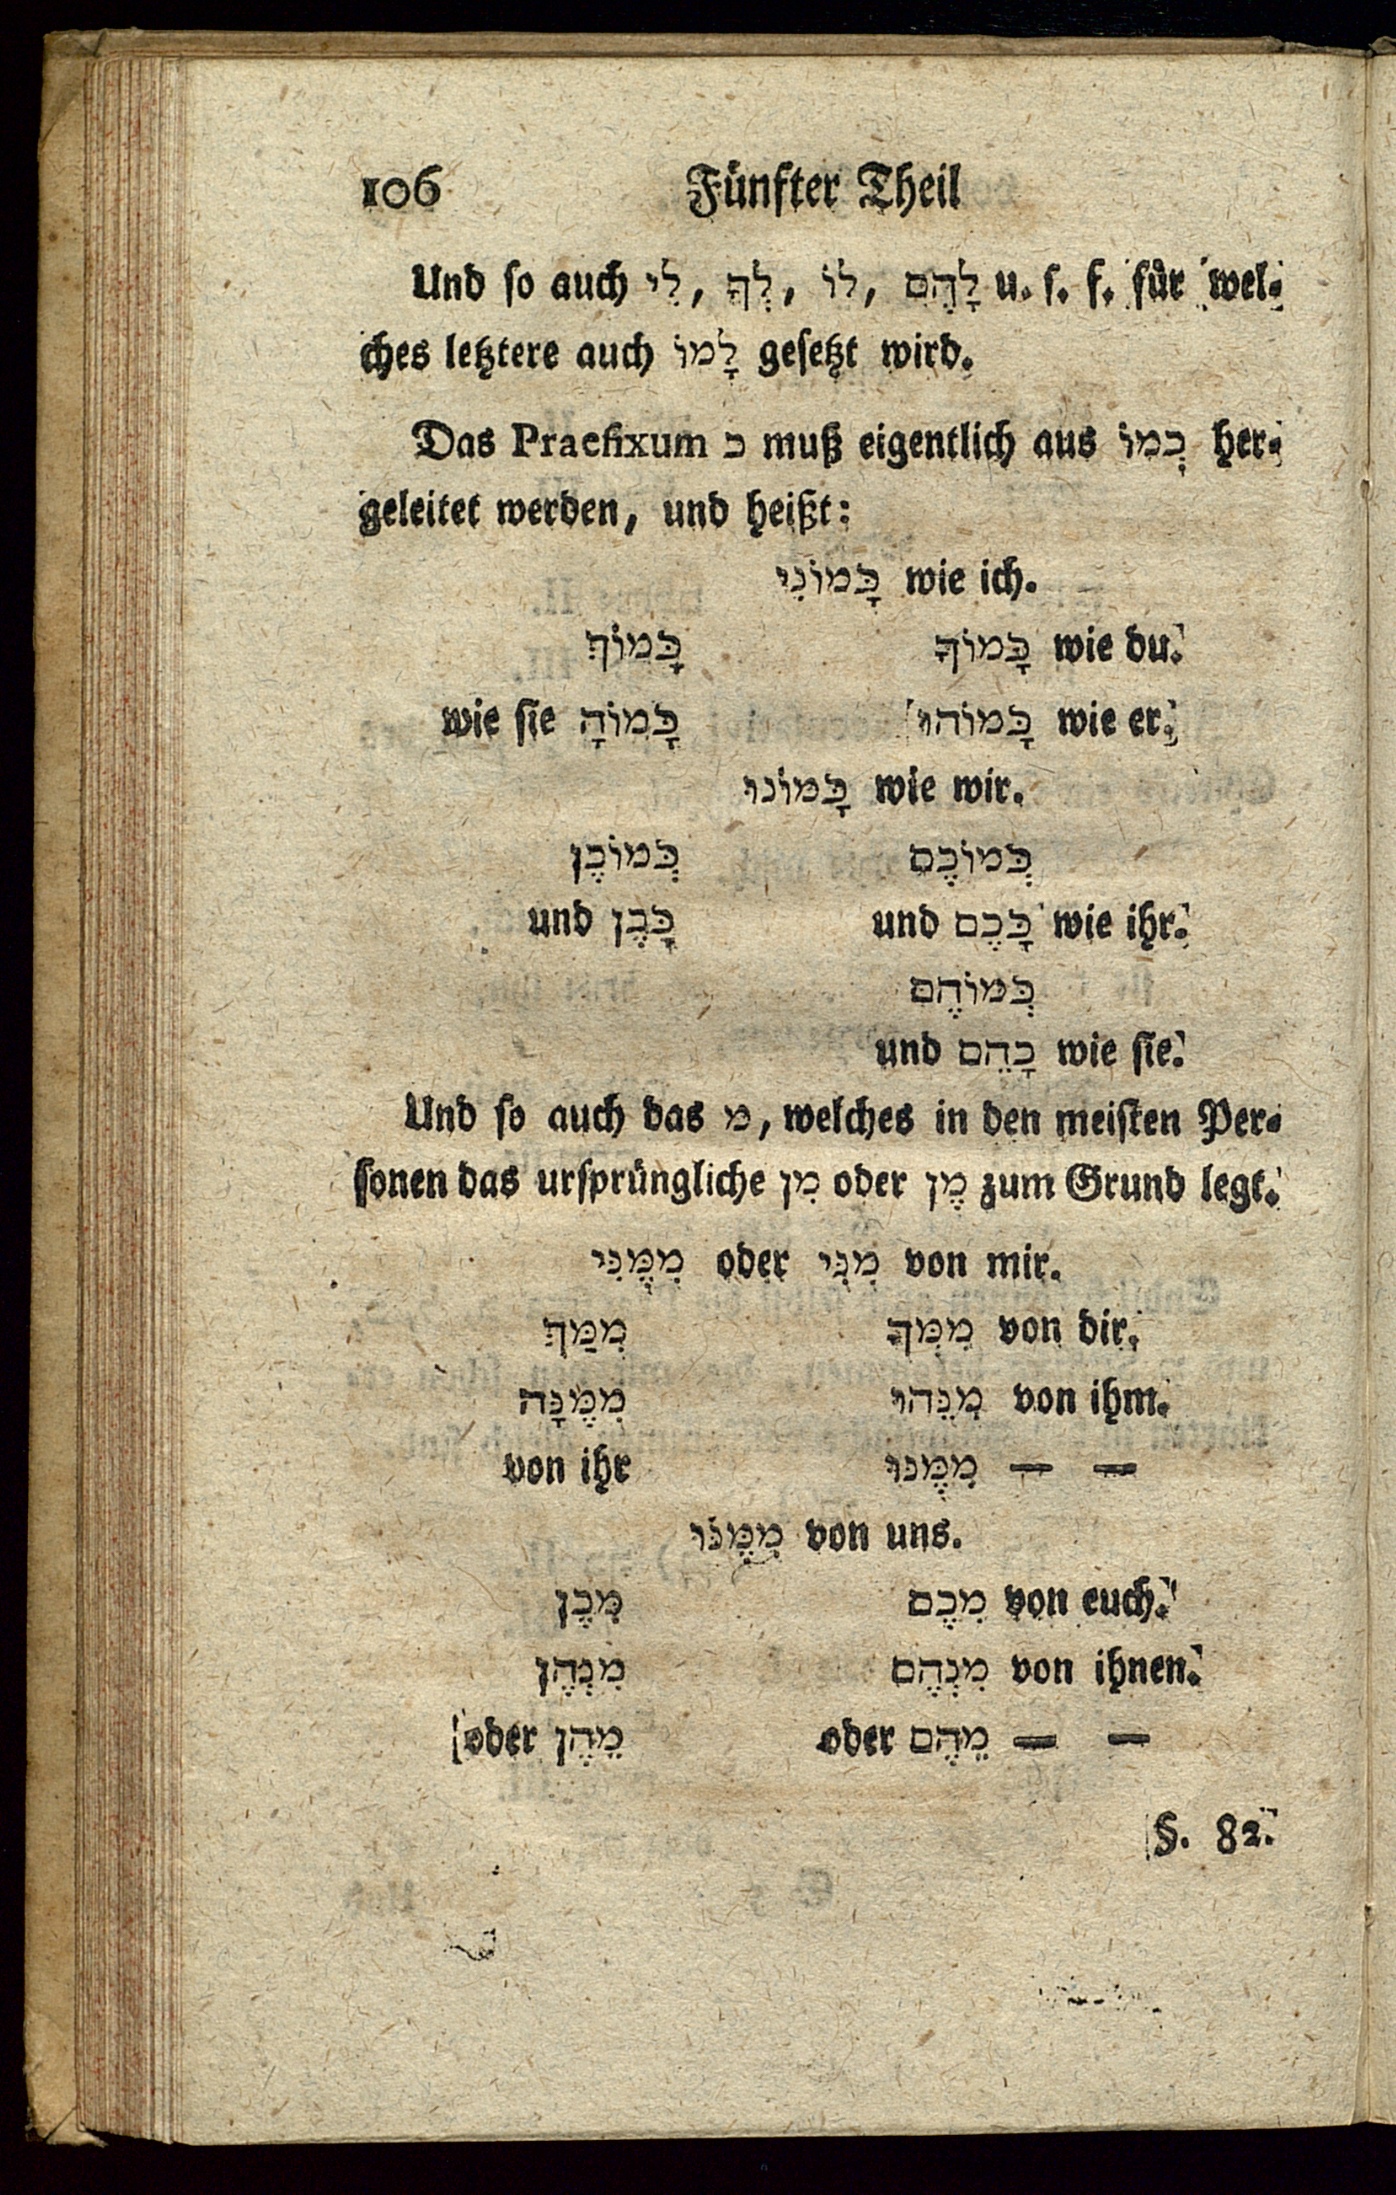 106 Fünfter Theil
Und so auch לִי, לְךָ, לוֹ, לָהֶם u. s. f. für wel-
ches letztere auch לָמוֹ gesetzt wird.
Das Praefixum כ muß eigentlich aus כְמוֹ her-
geleitet werden, und heißt:
כָּמוֹנִי wie ich.
כָּמוֹךְ כָּמוֹךָ wie du.
wie sie כָּמוֹהָ כָּמוֹהוּ wie er.
כָּמוֹנוּ wie wir.
כְּמוֹכֶן כְּמוֹכֶם
und כָּבֶן und כָּכֶם wie ihr.
כְּמוֹהֶם
und כָהֵם wie sie.
Und so auch das מ, welches in den meisten Per-
sonen das ursprüngliche מִן oder מֶן zum Grund legt.
מִמֶּנִּי oder מִנִּי von mir.
מִמַּךְ מִמְּךָ von dir.
מִמֶּנָּה מִנֵּהוּ von ihm.
von ihr מִמֶּנּוּ — —
מִמֶּנּוּ von uns.
מִכֶן מִכֶם von euch.
מִנְהֶן מִנְהֶם von ihnen.
oder מֵהֶן oder מֵהֶם — —
§. 82.